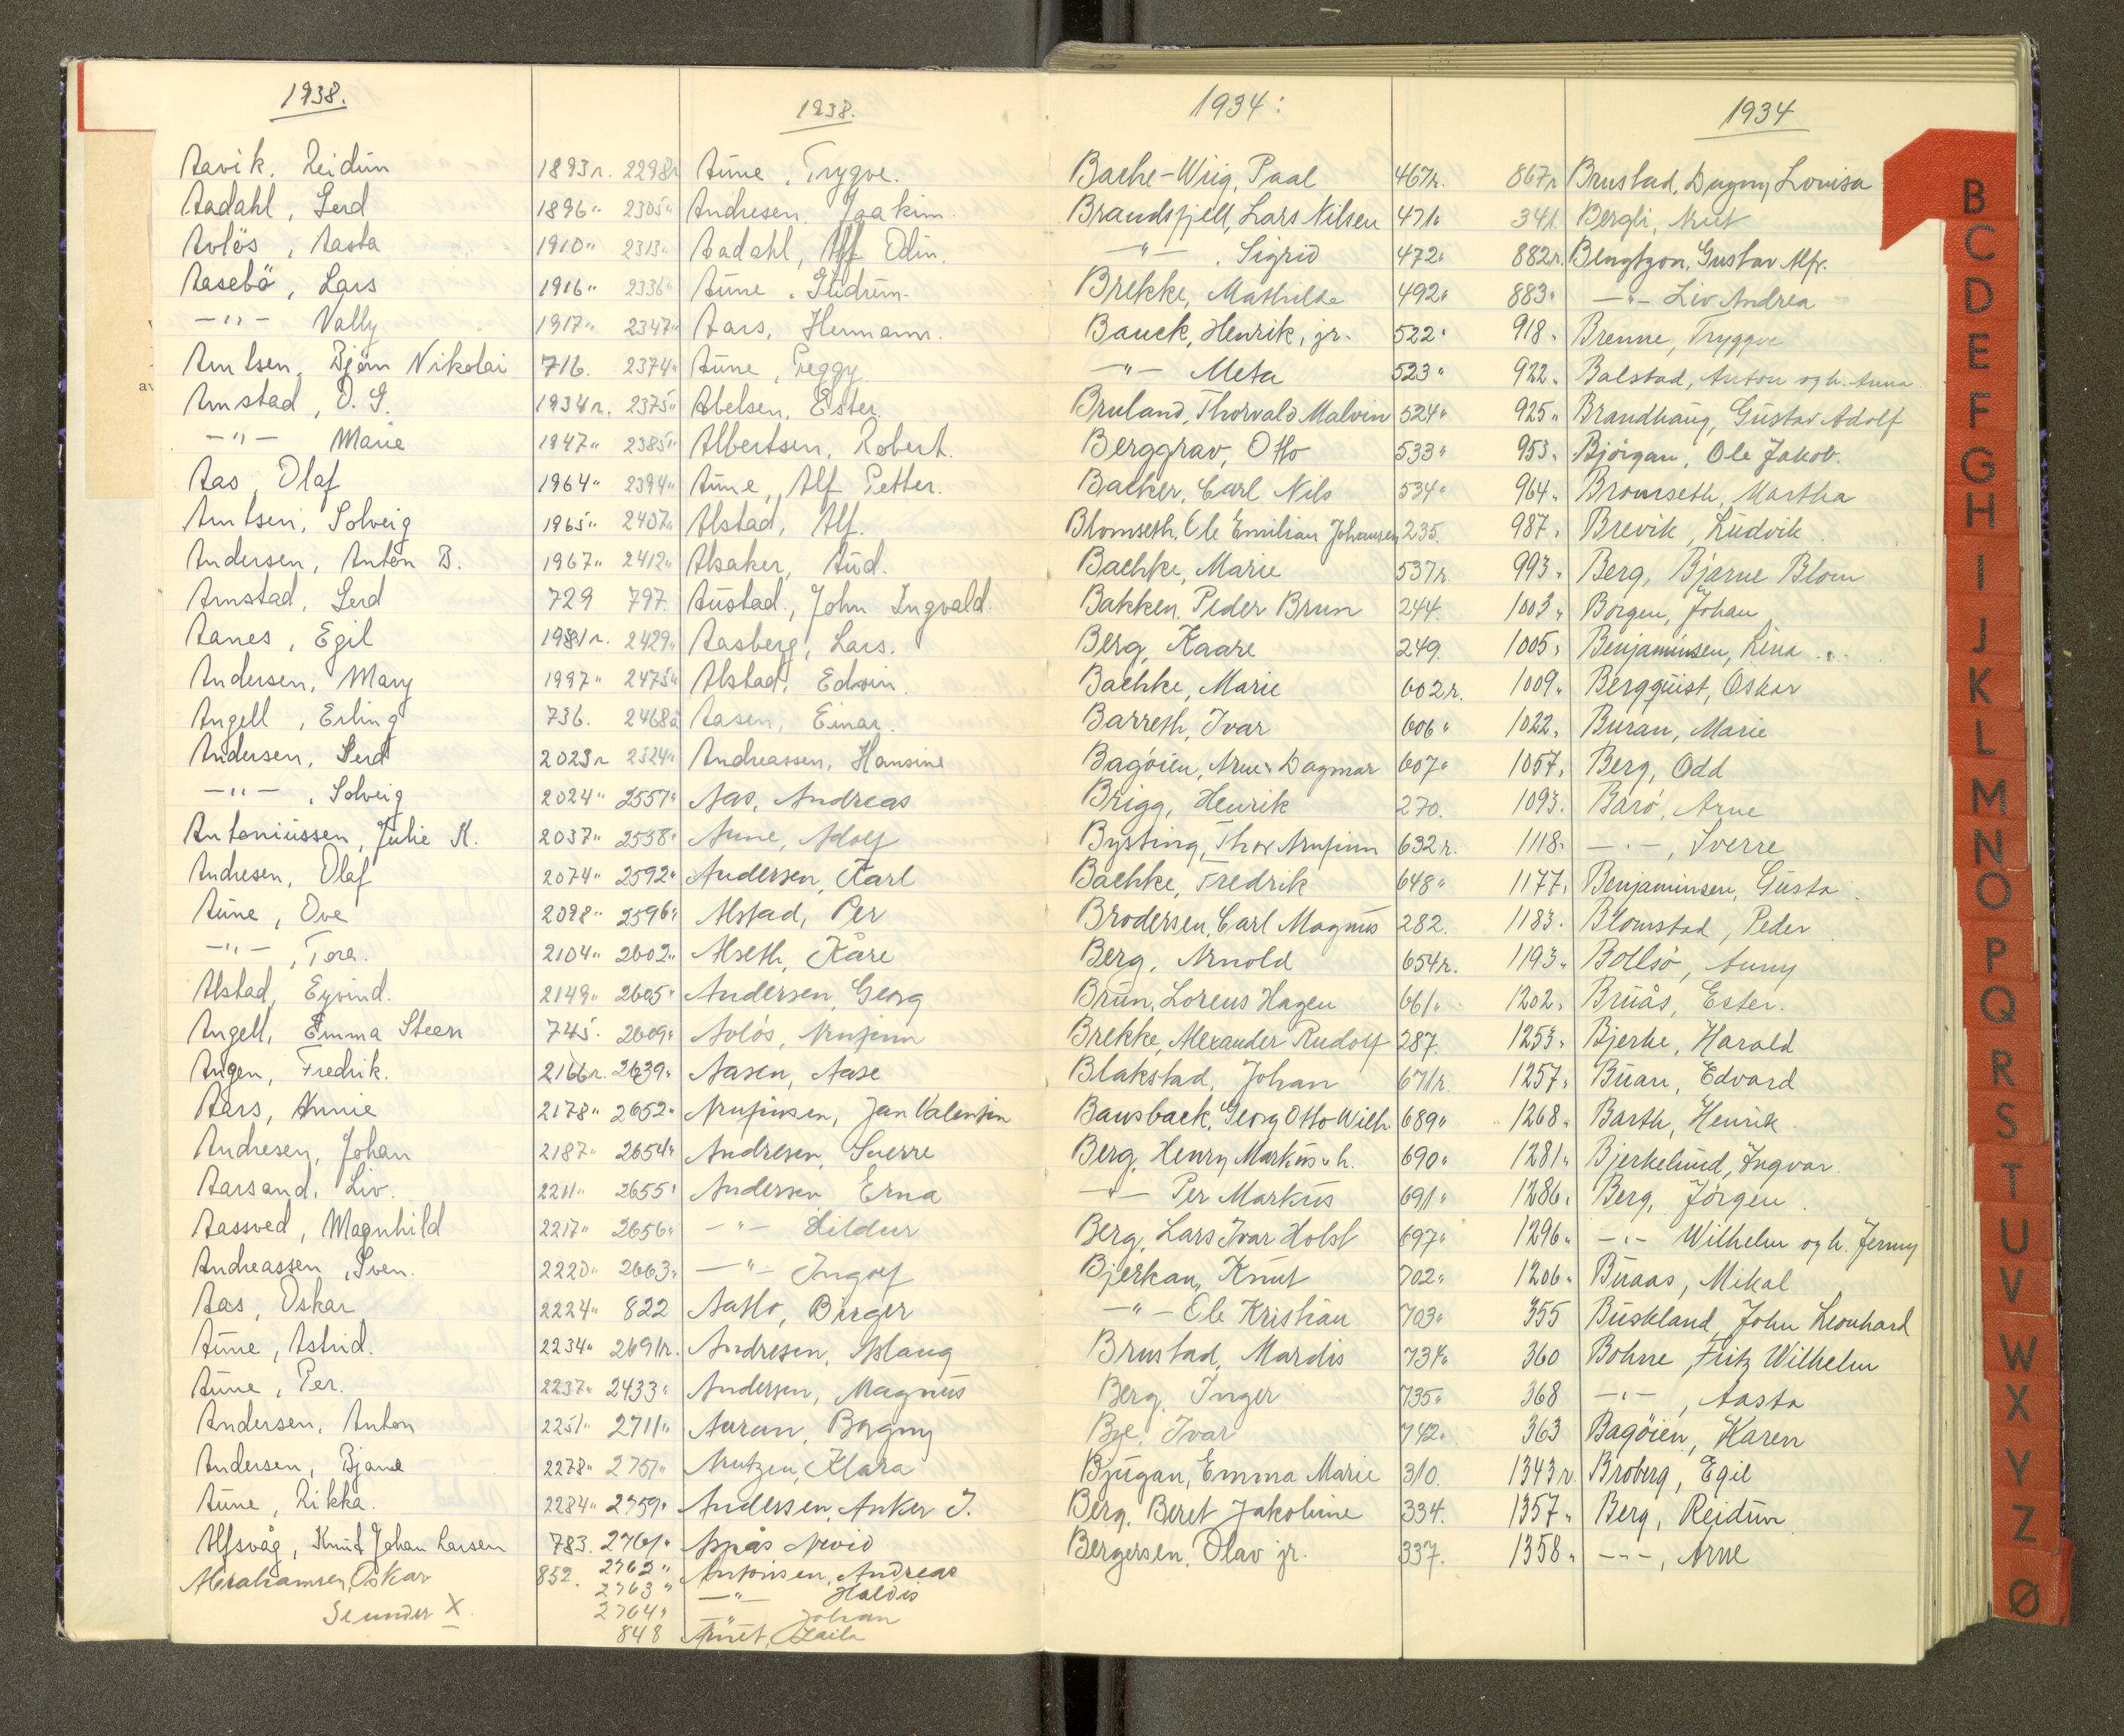 1938.
Aavik, Reidun 1893r.
Aadahl, Gerd 1896"
Avlös, Aasta 1910"
Aasebö, Lars 1916"
—"— Vally 1917"
Arntsen, Bjørn Nikolai 716.
Arnstad, O. G. 1934r.
—"— Marie 1947"
Aas, Olaf 1964"
Arntsen, Solveig 1965"
Andersen, Anton B. 1967"
Arnstad, Gerd 729
Aanes, Egil 1981r.
Andersen, Mary 1997"
Angell, Erling 736.
Andersen, Gerd 2023r
—"—, Solveig 2024"
Antoniussen, Julie K. 2037"
Andresen, Olaf 2074"
Aune, Ove 2098"
—"—, Tora. 2104"
Alstad, Eyvind. 2149"
Angell, Emma Steen 745.
Angen, Fredrik. 2166r.
Aars, Annie 2178"
Andresen, Johan 2187"
Aarsand, Liv. 2211"
Aassved, Magnhild 2217"
Andreassen, Sven. 2220"
Aas, Oskar 2224"
Aune, Astrid. 2234"
Aune, Per. 2237"
Andersen, Anton 2251"
Andersen, Bjarne 2278"
Aune, Rikka. 2284"
Alfsvåg, Knut Johan Larsen 783.
Abrahamsen, Oskar 852.
Se under X
1938.
2298r Aune, Trygve.
2305" Andresen, Joakim.
2313" Aadahl, Alf Odin.
2336" Aune, Gudrun.
2347" Aars, Hermann.
2374" Aune, Peggy
2375" Abelsen, Ester
2385" Albertsen, Robert.
2394" Aune, Alf Petter.
2407" Alstad, Alf.
2412" Alsaker, Aud.
797. Austad, John Ingvald.
2429" Aasberg, Lars.
2475" Alstad, Edvin.
2468a Aasen, Einar.
2524" Andreassen, Hansine
2557" Aas, Andreas
2558" Aune, Adolf
2592" Andersen, Karl
2596" Alstad, Per
2602" Alseth, Kåre
2605" Andersen, Georg
2609" Avlös, Arnfinn
2639" Aasen, Aase
2652" Arnfinsen, Jan Valentin
2654" Andresen, Sverre
2655" Andersen, Erna
2656" —"— Hildur
2663" —"— Ingolf
822 Aatlo, Birger
2691r. Andresen, Aslaug
2433" Andersen, Magnus
2711" Auran, Borgny
2757" Arntzen, Klara
2759" Andersen, Anker J.
2761" Aspås Arvid
2762" Antonsen, Andreas
2763" —"— Haldis
2764" —"— Johan
848 Arnet, Laila
1934:
Bache-Wiig, Paal 467r.
Brandsfjell, Lars Nilsen 471"
—"—, Sigrid 472"
Brekke, Mathilde 492"
Bauck, Henrik, jr. 522"
—"— Meta 523"
Bruland, Thorvald Malvin 524"
Berggrav, Otto 533"
Backer, Carl Nils 534"
Blomseth, Ole Emilian Johansen 235.
Bachke, Marie 537r.
Bakken, Peder Brun 244.
Berg, Kaare 249.
Bachke, Marie 602r.
Barreth, Ivar 606"
Bagøien, Arne & Dagmar 607"
Brigg, Henrik 270.
Bysting, Thor Arnfinn 632r.
Bachke, Fredrik 648"
Brodersen, Carl Magnus 282.
Berg, Arnold 654r.
Brun, Lorens Hagen 661"
Brekke, Alexander Rudolf 287.
Blakstad, Johan 671r.
Bausback, Georg Otto Wilh 689"
Berg, Henry Markus & h. 690"
—"— Per Markus 691"
Berg, Lars Ivar Holst 697"
Bjerkan, Knut 702"
—"— Ole Kristian 703"
Brustad, Mardis 734"
Berg, Inger 735"
Bye, Ivar 742"
Bjugan, Emma Marie 310.
Berg, Beret Jakobine 334.
Bergersen, Olav jr. 337.
1934
867r Brustad, Dagny Louisa
341. Bergli, Knut
882r. Bengtzon, Gustav Alfr.
883" —"— Liv Andrea
918" Brenne, Tryggve
922" Balstad, Anton og h. Anna
925" Brandhaug, Gustav Adolf
953" Bjørgan, Ole Jakob.
964" Bromseth, Martha
987" Brevik, Ludvik
993" Berg, Bjarne Blom
1003" Borgen, Johan
1005" Benjaminsen, Lina
1009" Bergquist, Oskar
1022" Buran, Marie
1057" Berg, Odd
1093" Barø, Arne
1118" —"—, Sverre
1177" Benjaminsen, Gusta
1183" Blomstad, Peder
1193" Bollsø, Anny
1202" Bruås, Ester.
1253" Bjerke, Harald
1257" Buan, Edvard
1268" Barth, Henrik
1281" Bjerkelund, Ingvar
1286" Berg, Jørgen
1296" —"— Wilhelm og h. Jenny
1206" Buaas, Mikal
355 Buskland, John Leonhard
360 Bohne, Fritz Wilhelm
368 —"—, Aasta
363 Bagøien, Karen
1343r Broberg, Egil
1357" Berg, Reidun
1358" —"—, Arne
B
C
D
E
F
G
H
I
J
K
L
M
N
O
P
Q
R
S
T
U
V
W
X
Y
Z
Ø